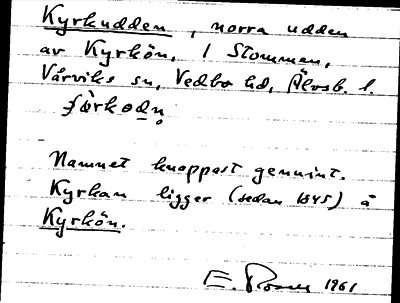 Kyrkudden, norra udden
av Kyrkön, i Stommen,
Vårviks sn, Vedbo hd, Älvsb. l.
Namnet knappast genuint.
Kyrkan ligger (sedan 1845) å
Kyrkön.
E. 1961